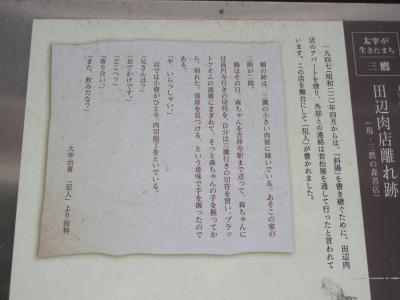 太宰が
生きたまち
三鷹
田辺肉店離れ跡
(現・三鷹の森書店)
一九四七(昭和二二)年四月からは、「斜陽」を書き継ぐために、田辺肉
店のアパートを借り、外部との連絡は若松屋を通して行ったと言われて
います。この店を舞台にして「犯人」が書かれました。
鶴の姉は、三鷹の小さい肉屋に嫁いでいる。あそこの家の
二階が二間。
鶴はその日、森ちゃんを吉祥寺駅まで送って、森ちゃんに
は高円寺行きの切符を、自分は三鷹行きの切符を買い、プラッ
トフオムの混雑にまぎれて、そっと森ちゃんの手を握ってか
ら、別れた。部屋を見つける、という意味で手を握ったので
ある。
「や、いらっしゃい。」
店では小僧がひとり、肉切庖丁をといでいる。
「兄さんは?」
「おでかけです。」
「どこへ?」
「寄り合い。」
「また、飲みだな?」
太宰治著 「犯人」より抜粋